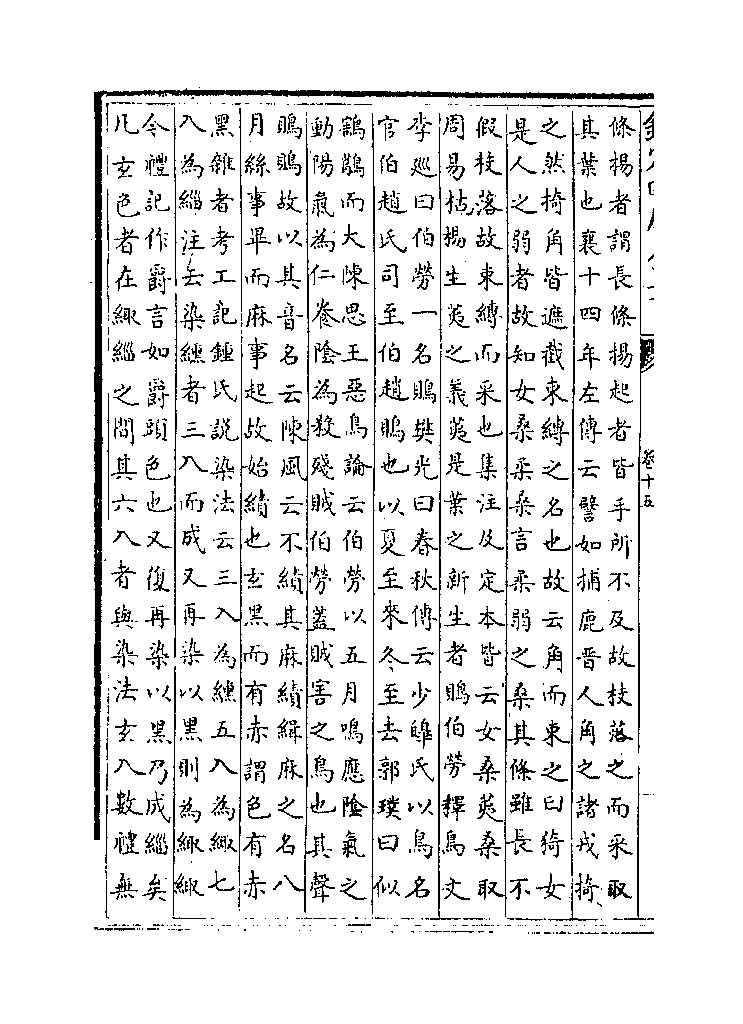 卷十五
條揚者謂長條揚起者皆手所不及故枝落之而采取
其葉也襄十四年左傳云譬如捕鹿晉人角之諸戎掎
之然掎角皆遮截束縛之名也故云角而束之曰猗女
是人之弱者故知女桑柔桑言柔弱之桑其條雖長不
假枝落故束縛而采也集注及定本皆云女桑荑桑取
周易枯楊生荑之義荑是葉之新生者鵙伯勞釋鳥文
李廵曰伯勞一名鵙樊光曰春秋傳云少皥氏以鳥名
官伯趙氏司至伯趙鵙也以夏至來冬至去郭璞曰似
鶷鶡而大陳思王惡鳥論云伯勞以五月鳴應隂氣之
動陽氣為仁養隂為殺殘賊伯勞蓋賊害之鳥也其聲
鵙鵙故以其音名云陳風云不績其麻績緝麻之名八
月絲事畢而麻事起故始績也玄黑而有赤謂色有赤
黑雜者考工記鍾氏說染法云三入為纁五入為緅七
入為緇注云染纁者三入而成又再染以黑則為緅緅
今禮記作爵言如爵頭色也又復再染以黑乃成緇矣
凡玄色者在緅緇之間其六入者與染法玄入數禮無